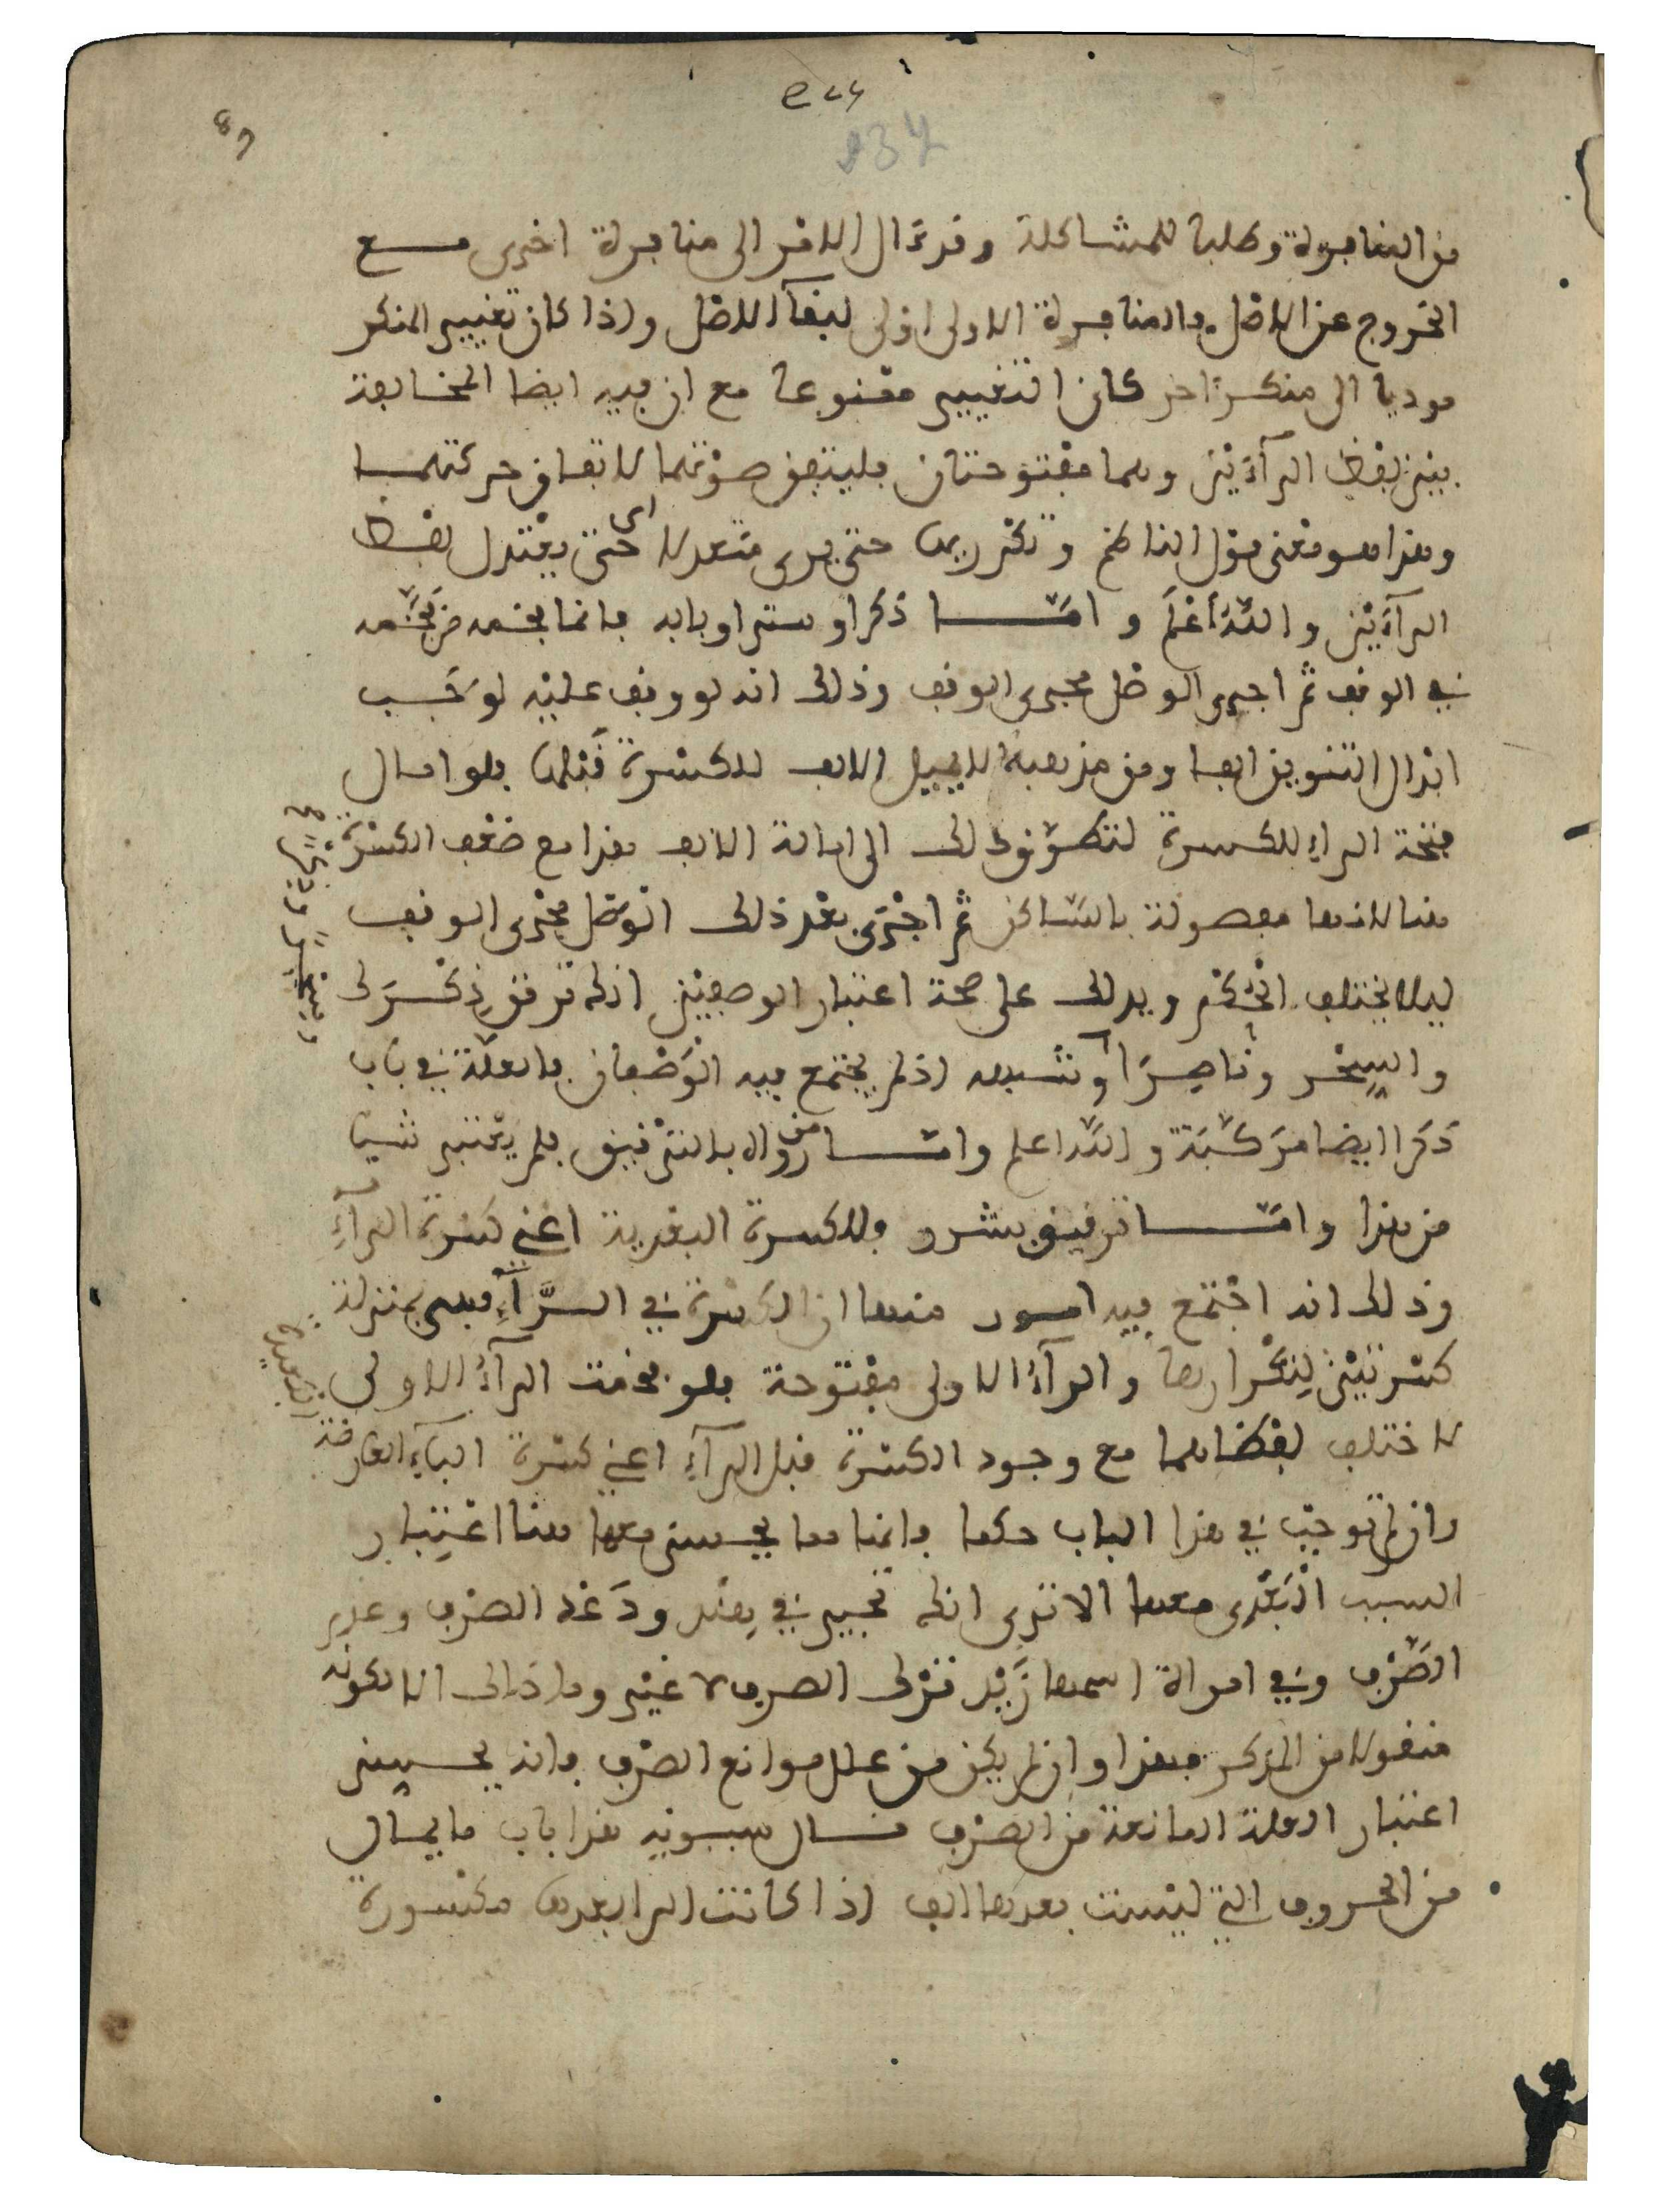 من المنافرة وطلبا للمشاكلة وقد ءال الامر الى منافرة اخرى مع
الخروج عن الاصل فالمنافرة الاولى اولى لبقآء الاصل واذا كان تغيير المنكر
موديا الى منكر ءاخر كان التغيير ممنوعا مع ان فيه ايضا المخالفة
بين لفظ الرآءين وهما مفتوحتان فليتفق صوتهما لاتفاق حركتهما
وهذا هو معنى قول الناظم وتكريرها حتى يرى متعدلا اي حتى يعتدل لفظ
الرآءين والله أعلم وامّا ذكرا وسترا وبابه فانما فخمه من فخّمه
في الوقف ثم اجرى الوصل مجرى الوقف وذلك انه لو وقف عليه لوجب
ابدال التنوين الفا ومن مذهبه الا يميل الالف للكسرة قبلها فلو امال
فتحة الراءِ للكسرة لتطرّق ذلك الى امالة الالف هذا مع ضعف الكسرة
هنا لانها مفصولة بالسّاكن ثم اجرى بعد ذلك الوصل مجرى الوقف
ليلا يختلف الحُكم ويدلك على صحة اعتبار الوصفين انه ترقق ذِكْرَك
والسِحْر وناصِرًا وشبهه اذ لم يجتمع فيه الوَصْفان فالعلّة في باب
ذكرا ايضا مركّبة والله اعلم وامّا من رواه بالترقيق فلم يعتبر شيا
من هذا وامّا ترقيق بشرر فللكسرة البعدية اعني كسرة الرآءِ
وذلك انه اجتمع فيه امور منها ان الكسرة في الرّآءِ فهي بمنزلة
كسرتين لِتكْرارها والرآءُ الاولى مفتوحة فلو فخمت الرآءُ الاولى
لاختلف لفظاهما مع وجود الكسرة قبل الرآءِ اعني كسرة البآءِ العارضة
وان لم توجب في هذا الباب حكما فانما هنا يحسن معها هنا اعتبار
السبب البَعْدي معها الا ترى انك تخير في هند ودَعْد الصرف وعدم
الصّرف وفي امراة اسمها زَيْد ترك الصرف لا غير وما ذاك الا لكونه
منقولا من المذكر فهذا وان لم يكن من علل موانع الصرف فانه يحسن
اعتبار العلة المانعة من الصرف قال سيبويه هذا باب ما يمال
من الحروف التي ليست بعدها الف اذا كانت الرا بعدها مكسورة